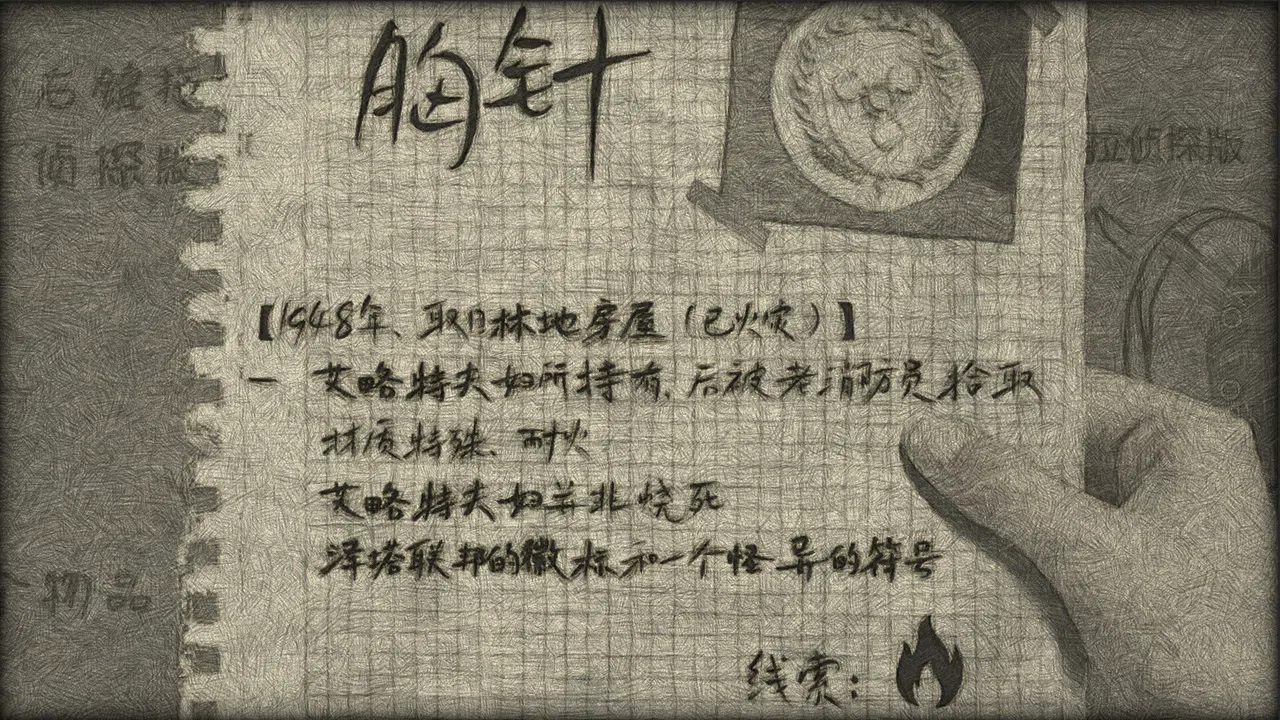 胸针
侦探版
拉侦探版
【1948年、取日林地房屋（已火灾）】
一 艾略特夫妇所持有,后被老消防员拾取
材质特殊、耐火
艾略特夫妇并非烧死
泽塔联邦的徽标和一个怪异的符号
物品
线索: